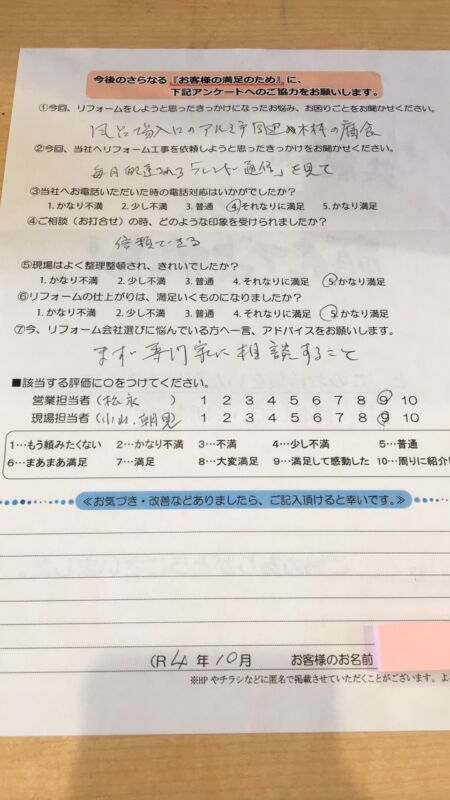 今後のさらなる『お客様の満足のため』に、
下記アンケートへのご協力をお願いします。
①今回、リフォームをしようと思ったきっかけになったお悩み、お困りごとをお聞かせください。
風呂場入口のアルミ 周辺 木材の腐食
②今回、当社へリフォーム工事を依頼しようと思ったきっかけをお聞かせください。
毎月配達される 通信」を見て
③当社へお電話いただいた時の電話対応はいかがでしたか?
1. かなり不満 2. 少し不満 3. 普通 4. それなりに満足 5. かなり満足
④ご相談(お打合せ)の時、どのような印象を受けられましたか?
信頼できる
⑤現場はよく整理整頓され、きれいでしたか?
1. かなり不満 2. 少し不満 3. 普通 4. それなりに満足 5. かなり満足
⑥リフォームの仕上がりは、満足いくものになりましたか?
1. かなり不満 2. 少し不満 3. 普通 4. それなりに満足 5. かなり満足
⑦今、リフォーム会社選びに悩んでいる方へ一言、アドバイスをお願いします。
まず専門家に相談すること
■該当する評価に○をつけてください。
営業担当者(松永 ) 1 2 3 4 5 6 7 8 9 10
現場担当者(小山、朝見) 1 2 3 4 5 6 7 8 9 10
1…もう頼みたくない 2…かなり不満 3…不満 4…少し不満 5…普通
6…まあまあ満足 7…満足 8…大変満足 9…満足して感動した 10…周りに紹介
≪お気づき・改善などありましたら、ご記入頂けると幸いです。≫
(R 4 年 10 月 お客様のお名前
※HPやチラシなどに匿名で掲載させていただくことがございます。よ